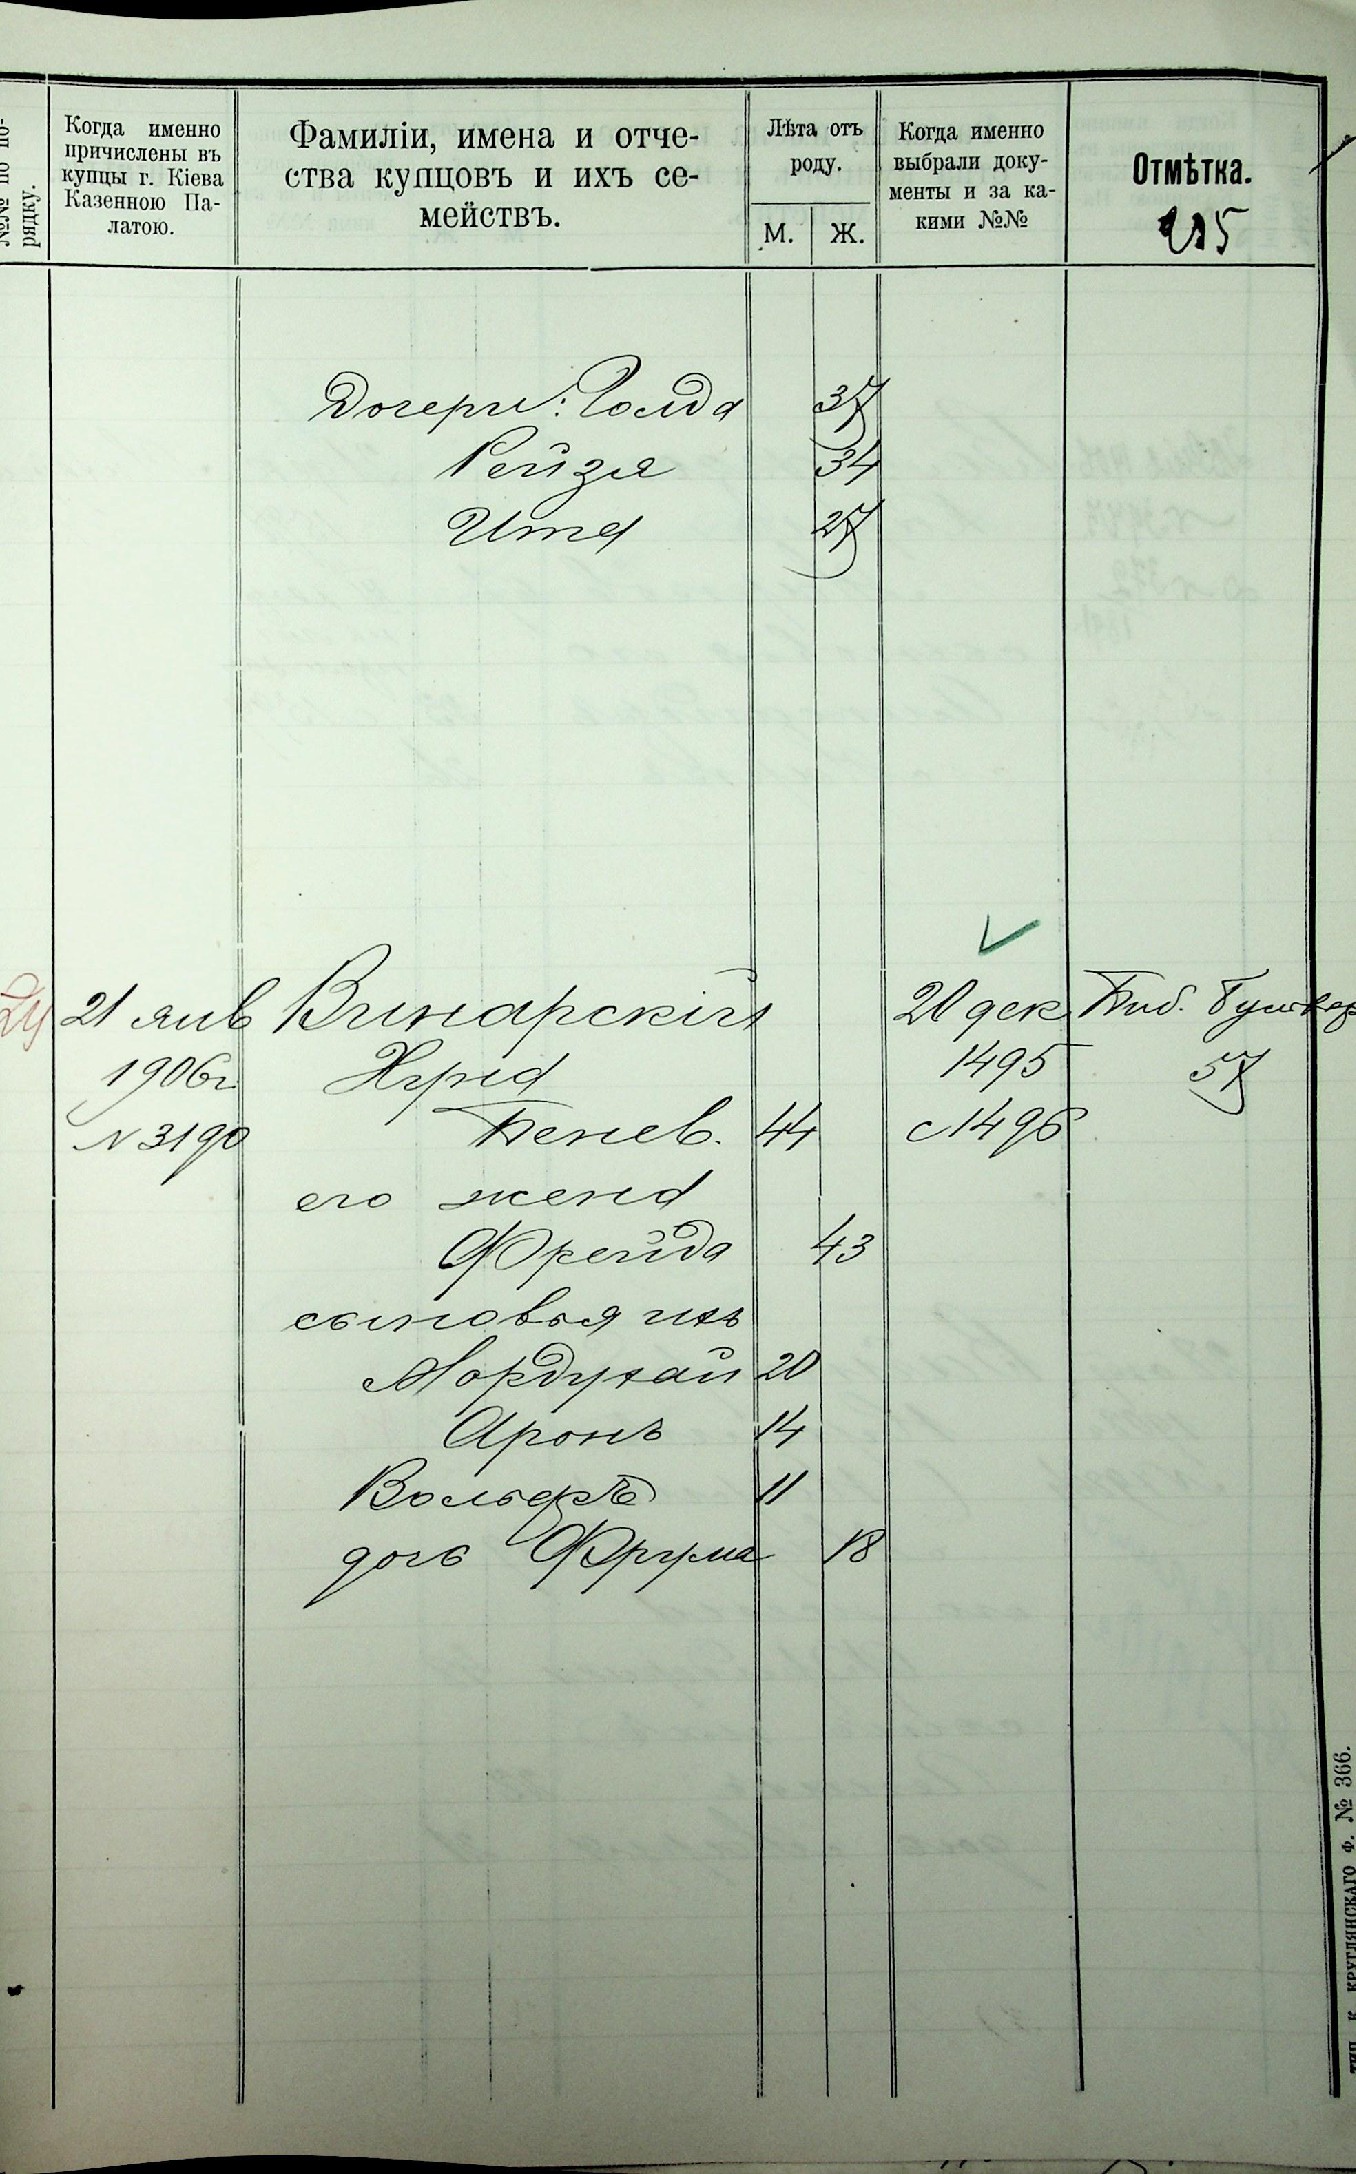 №№ по по-
рядку.
Когда именно
причислены въ
купцы г. Кіева
Казенною Па-
латою.
Фамиліи, имена и отче-
ства купцовъ и ихъ се-
мействъ.
Лѣта отъ
роду.
М. Ж.
Когда именно
выбрали доку-
менты и за ка-
кими №№
Отмѣтка.
Дочери: Голда 37
Рейзя 34
Ита 27
21 янв Винарскій 20 дек Биб. Бульвар
1906г 1495 57
N 3190 Бенев. 44 с 1496
его жена
Фрейда 43
сыновья ихъ
Мордухай 20
Аронъ 14
Вольфъ 11
дочь Фрума 18
ТИП. К. КРУГЛЯНСКАГО Ф. № 366.